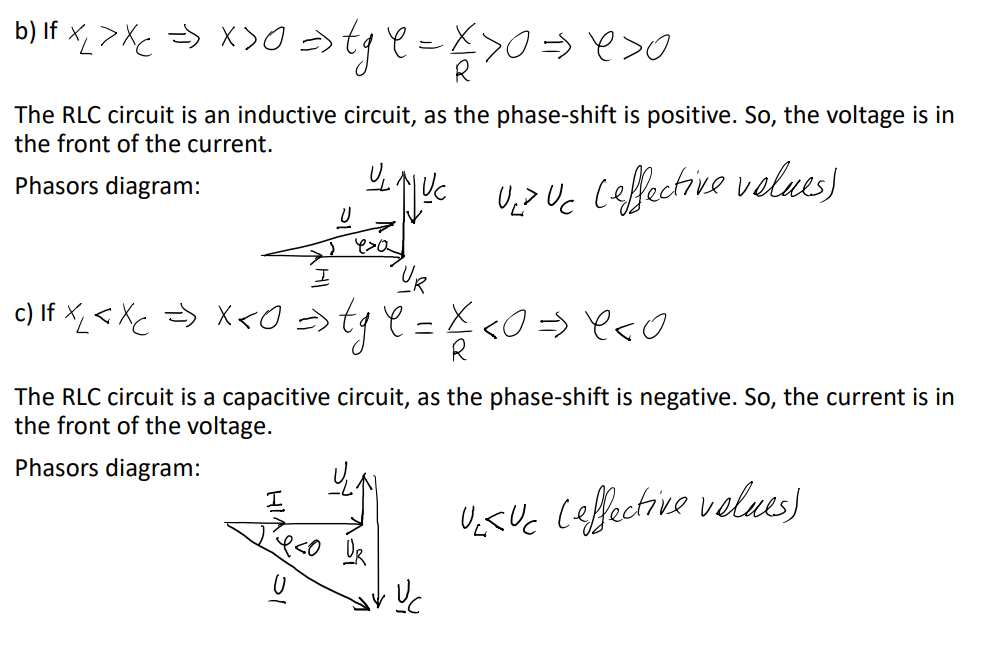 b) If X_L > X_C ⇒ X > 0 ⇒ tg φ = X/R > 0 ⇒ φ > 0
The RLC circuit is an inductive circuit, as the phase-shift is positive. So, the voltage is in
the front of the current.
Phasors diagram:
U_L U_C U_L > U_C (effective values)
U
φ>0
I U_R
c) If X_L < X_C ⇒ X < 0 ⇒ tg φ = X/R < 0 ⇒ φ < 0
The RLC circuit is a capacitive circuit, as the phase-shift is negative. So, the current is in
the front of the voltage.
Phasors diagram:
U_L
I U_L < U_C (effective values)
φ<0 U_R
U U_C